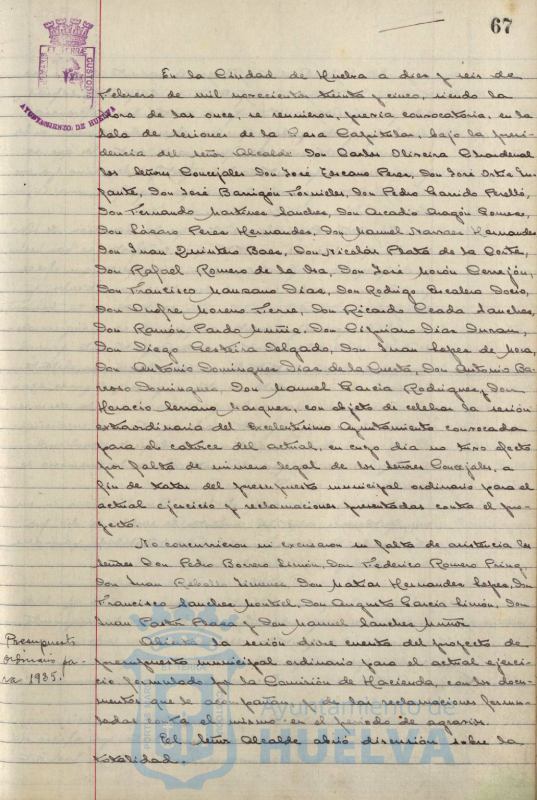 67
AYUNTAMIENTO DE HUELVA
En la Ciudad de Huelva a diez y seis de
Febrero de mil novecientos treinta y cinco, siendo la
hora de las once, se reunieron, previa convocatoria, en la
sala de sesiones de la Casa Capitular, bajo la presi-
dencia del señor Alcalde Don Carlos Oliveira Chardenal
los señores Concejales Don José Toscano Perez, Don José Ortiz In-
fante, Don José Barrigón Fornieles, Don Pedro Garrido Perelló,
Don Fernando Martinez Sanchez, Don Arcadio Aragón Gomez,
Don Lázaro Perez Hernandez, Don Manuel Narvaez Hernandez
Don Juan Quintero Baez, Don Nicolás Plata de la Corte,
Don Rafael Romero de la Osa, Don José Morón Cerrejón,
Don Francisco Manzano Diaz, Don Rodrigo Escalera Docio,
Don Onofre Moreno Ferre, Don Ricardo Ceada Sanchez,
Don Ramón Pardo Muñiz, Don Cipriano Diaz Duran,
Don Diego Gesteira Delgado, Don Juan Lopez de Mora,
Don Antonio Dominguez Diaz de la Cuesta, Don Antonio Ba-
rroso Dominguez, Don Manuel Garcia Rodriguez y Don
Horacio Serrano Marquez, con objeto de celebrar la sesión
extraordinaria del Excelentísimo Ayuntamiento convocada
para el catorce del actual, en cuyo dia no tuvo efecto
por falta de número legal de los señores Concejales, a
fin de tratar del presupuesto municipal ordinario para el
actual ejercicio y reclamaciones presentadas contra el pro-
yecto.
No concurrieron ni excusaron su falta de asistencia los
señores Don Pedro Borrero Limón, Don Federico Romero
Don Juan Rebollo Jimenez Don Matias Hernandez Lopez, Don
Francisco Sanchez Montiel, Don Augusto Garcia Limón, Don
Juan y Don Manuel Sanchez Muñoz.
Presupuesto
ordinario pa-
ra 1935.
Abierta la sesión diose cuenta del proyecto de
presupuesto municipal ordinario para el actual ejerci-
cio formulado por la Comisión de Hacienda, con los docu-
mentos que le acompañan y de las reclamaciones formu-
ladas contra el mismo en el periodo de agravios.
El señor Alcalde abrió discusión sobre la
totalidad.
Ayuntamiento de
HUELVA